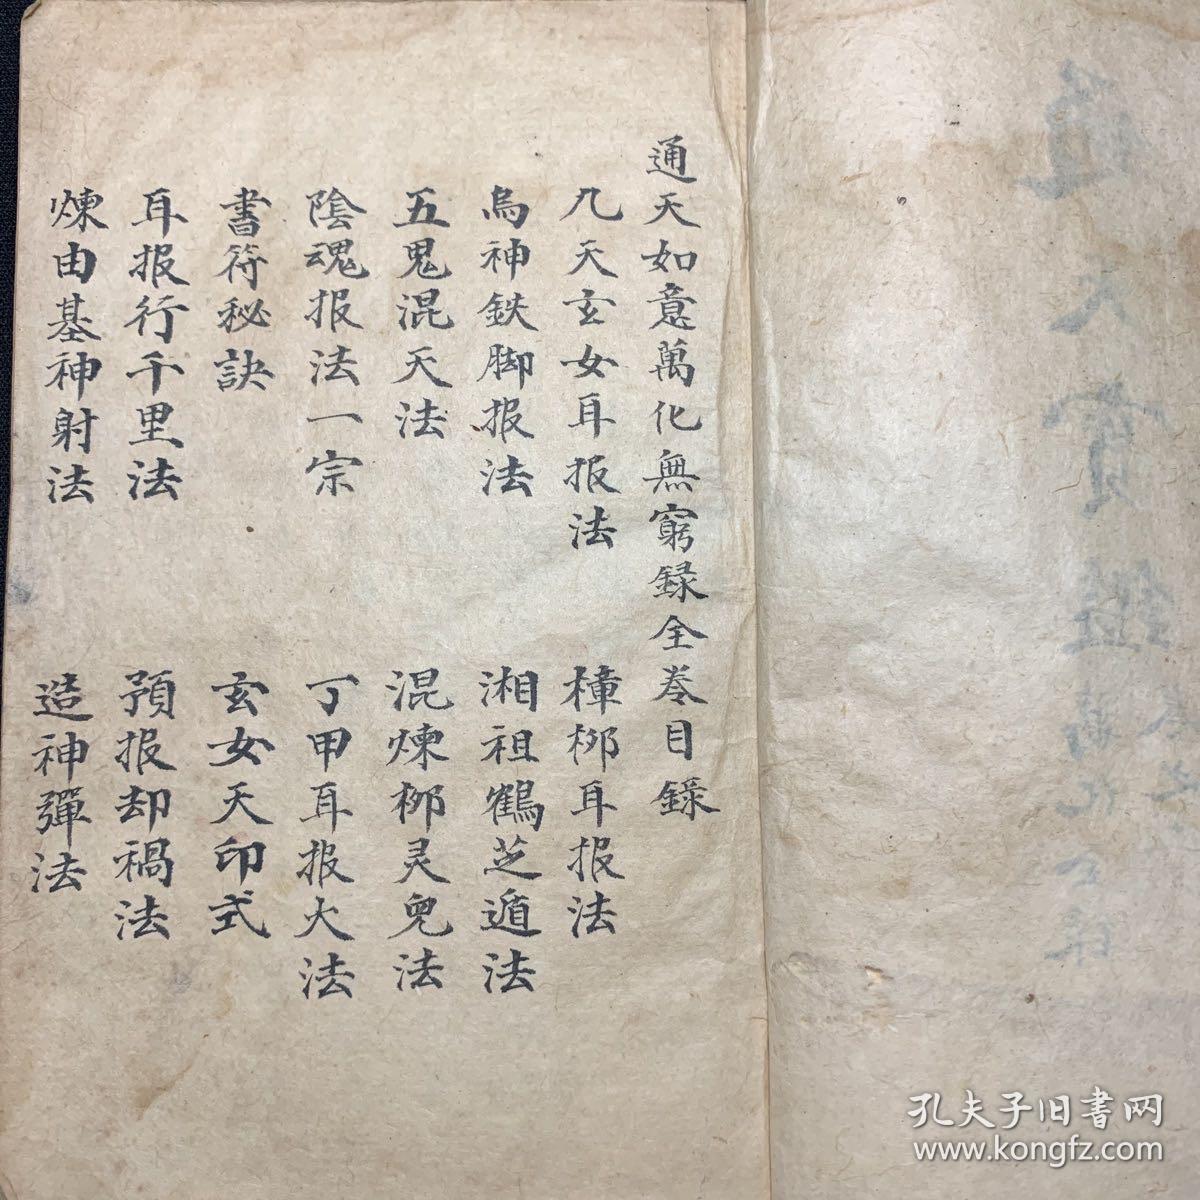 通天如意萬化無窮録全卷目錄
九天玄女耳报法
樟栁耳报法
烏神鉄脚报法
湘祖鶴芝遁法
五鬼混天法
混煉栁灵兒法
陰魂报法一宗
丁甲耳报大法
書符秘訣
玄女天印式
耳报行千里法
預报却禍法
煉由基神射法
造神彈法
孔夫子旧书网
www.kongfz.com